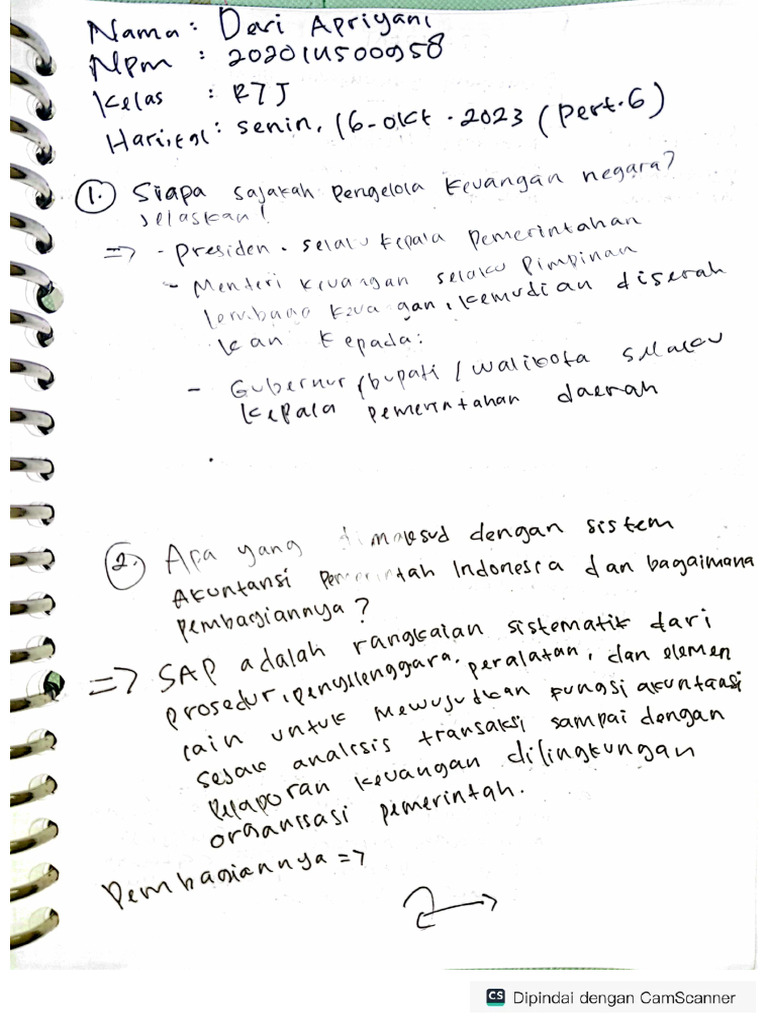 Nama : Devi Apriyani
Npm : 202014500958
Kelas : R7J
Hari, tgl : senin, 16-okt-2023 (pert.6)
1. Siapa sajakah pengelola keuangan negara?
jelaskan!
=> - Presiden. selaku kepala pemerintahan
- Menteri keuangan selaku pimpinan
lembaga keuangan, kemudian diserah
kan kepada:
- Gubernur/bupati/walikota selaku
kepala pemerintahan daerah
2. Apa yang dimaksud dengan sistem
Akuntansi pemerintah Indonesia dan bagaimana
pembagiannya?
=> SAP adalah rangkaian sistematik dari
prosedur, penyelenggara, peralatan, dan elemen
lain untuk mewujudkan fungsi akuntansi
sejak analisis transaksi sampai dengan
pelaporan keuangan dilingkungan
organisasi pemerintah.
Pembagiannya =>
CS Dipindai dengan CamScanner